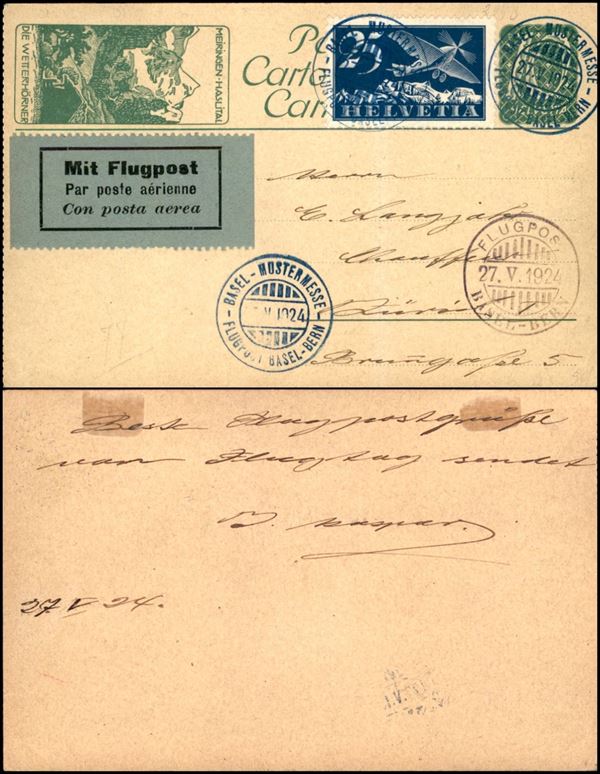 DIE WETTERHÖRNER
MEIRINGEN-HASLITAL
Po
Carto
Cart
25
HELVETIA
BASEL - MUSTERMESSE
27.V.1924
FLUGPOST BASEL-BERN
Mit Flugpost
Par poste aérienne
Con posta aerea
Herrn
E.
FLUGPOS
27. V. 1924
BASEL-BER
Zürich
BASEL - MUSTERMESSE
V.1924
FLUGPOST BASEL-BERN
Brungasse 5
Beste Flugpostgrüße
vom Flugtag sendet
27 V 24.